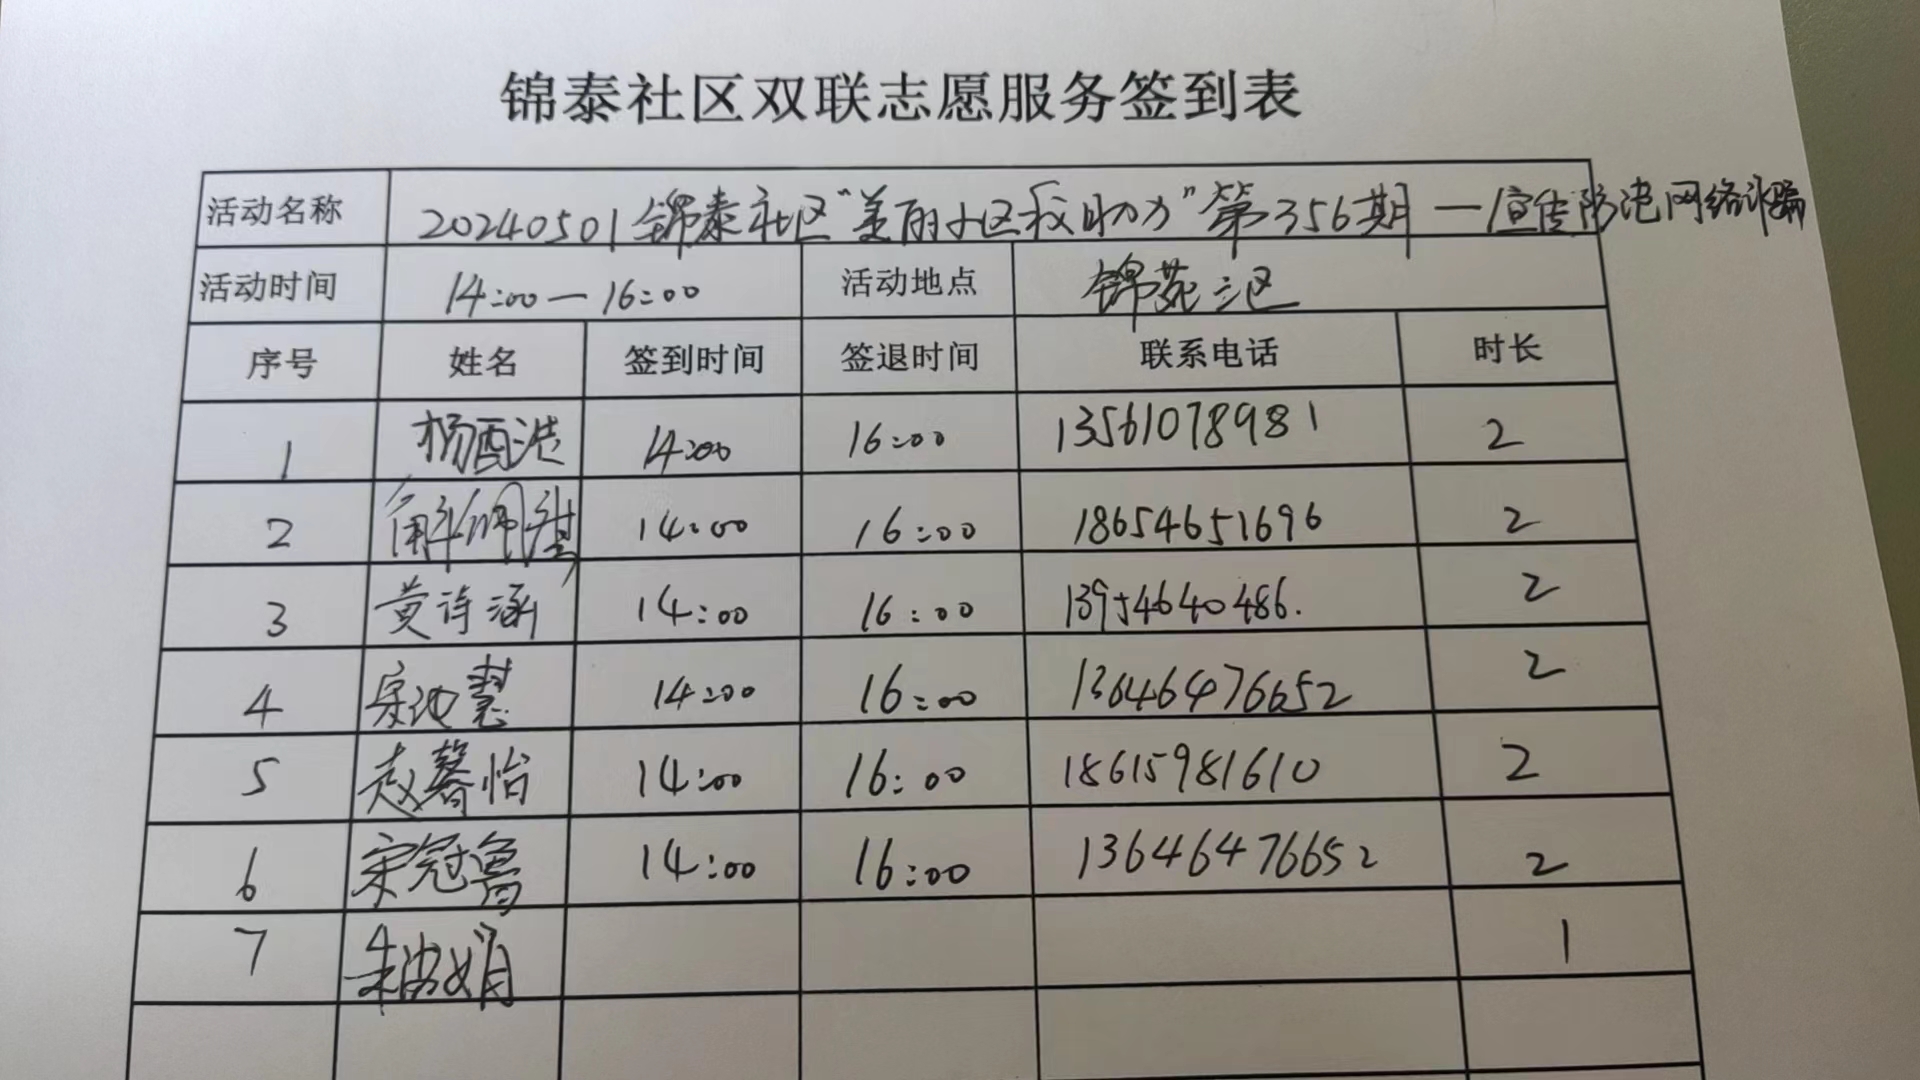 锦泰社区双联志愿服务签到表
活动名称 20240501锦泰社区“美丽小区我助力”第356期—宣传防电网络诈骗
活动时间 14:00—16:00 活动地点 锦苑三区
序号 姓名 签到时间 签退时间 联系电话 时长
1 杨酉浩 14:00 16:00 13561078981 2
2 解佩 14:00 16:00 18654651696 2
3 黄诗涵 14:00 16:00 13954640486. 2
4 宋池慧 14:00 16:00 13646476652 2
5 赵馨怡 14:00 16:00 18615981610 2
6 宋冠鲁 14:00 16:00 13646476652 2
7 朱 娟 1